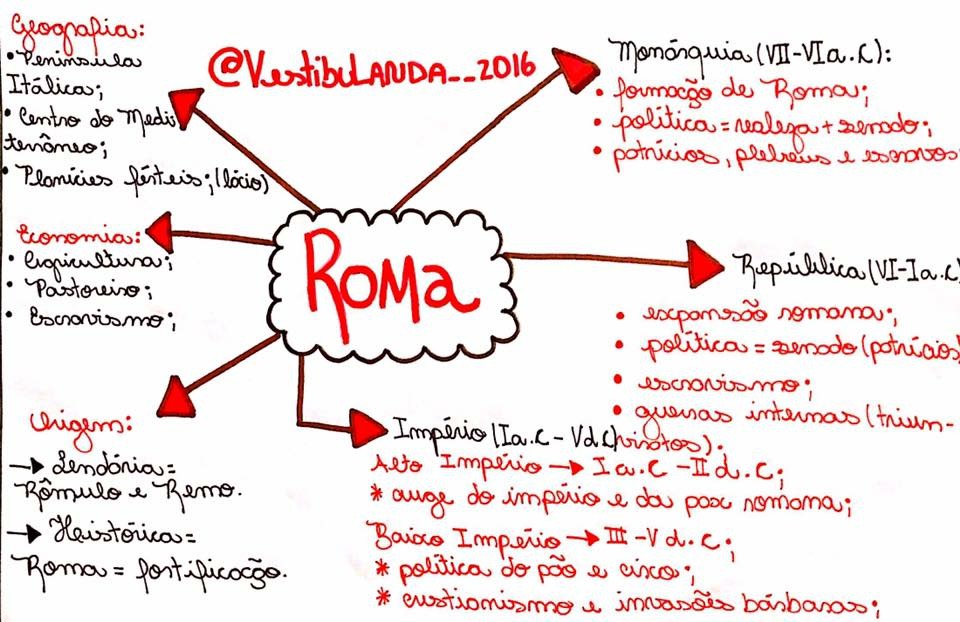 Geografia:
• Península
Itálica;
• Centro do Medi
terrâneo;
• Planícies férteis; (lácio)
@VestibuLANDA__2016
Monárquia (VII-VI a.C):
• formação de Roma;
• política = realeza + senado;
• patrícios, plebeus e escravos
Economia:
• Agricultura;
• Pastoreiso;
• Escravismo;
ROMA
República (VI-I a.C)
• expansão romana;
• política = senado (patrícios)
• escravismo;
• guerras internas (trium-
viratos).
Origem:
→ Lendária =
Rômulo e Remo.
→ Histórica =
Roma = fortificação.
Império (I a.C - V d.C)
Alto Império → I a.C - II d.C;
* auge do império e da pax romana;
Baixo Império → III - V d.C;
* política do pão e circo;
* cristianismo e invasões bárbaras;